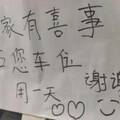 家有喜事
占您车位
用一天
谢谢